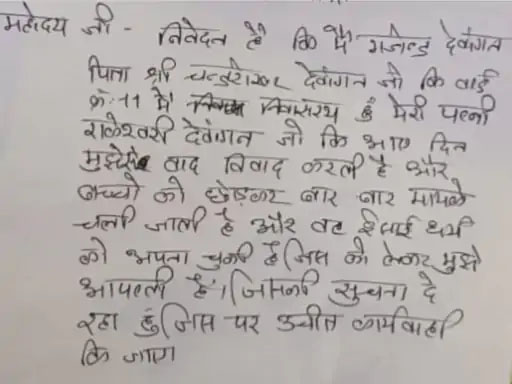 महोदय जी - निवेदन है कि मैं गजेन्द्र देवांगन
पिता श्री चन्द्रशेखर देवांगन जो कि वार्ड
क्रं:-11 में निवासरथ हुं मेरी पत्नी
राजेश्वरी देवांगन जो कि आए दिन
मुझसे वाद विवाद करती है और
बच्चो को छोड़कर बार बार मायके
चली जाती है और वह ईसाई धर्म
को अपना चुकी है जिस को लेकर मुझे
आपत्ती है। जिसकी सुचना दे
रहा हुं जिस पर उचीत कार्यवाही
कि जाए